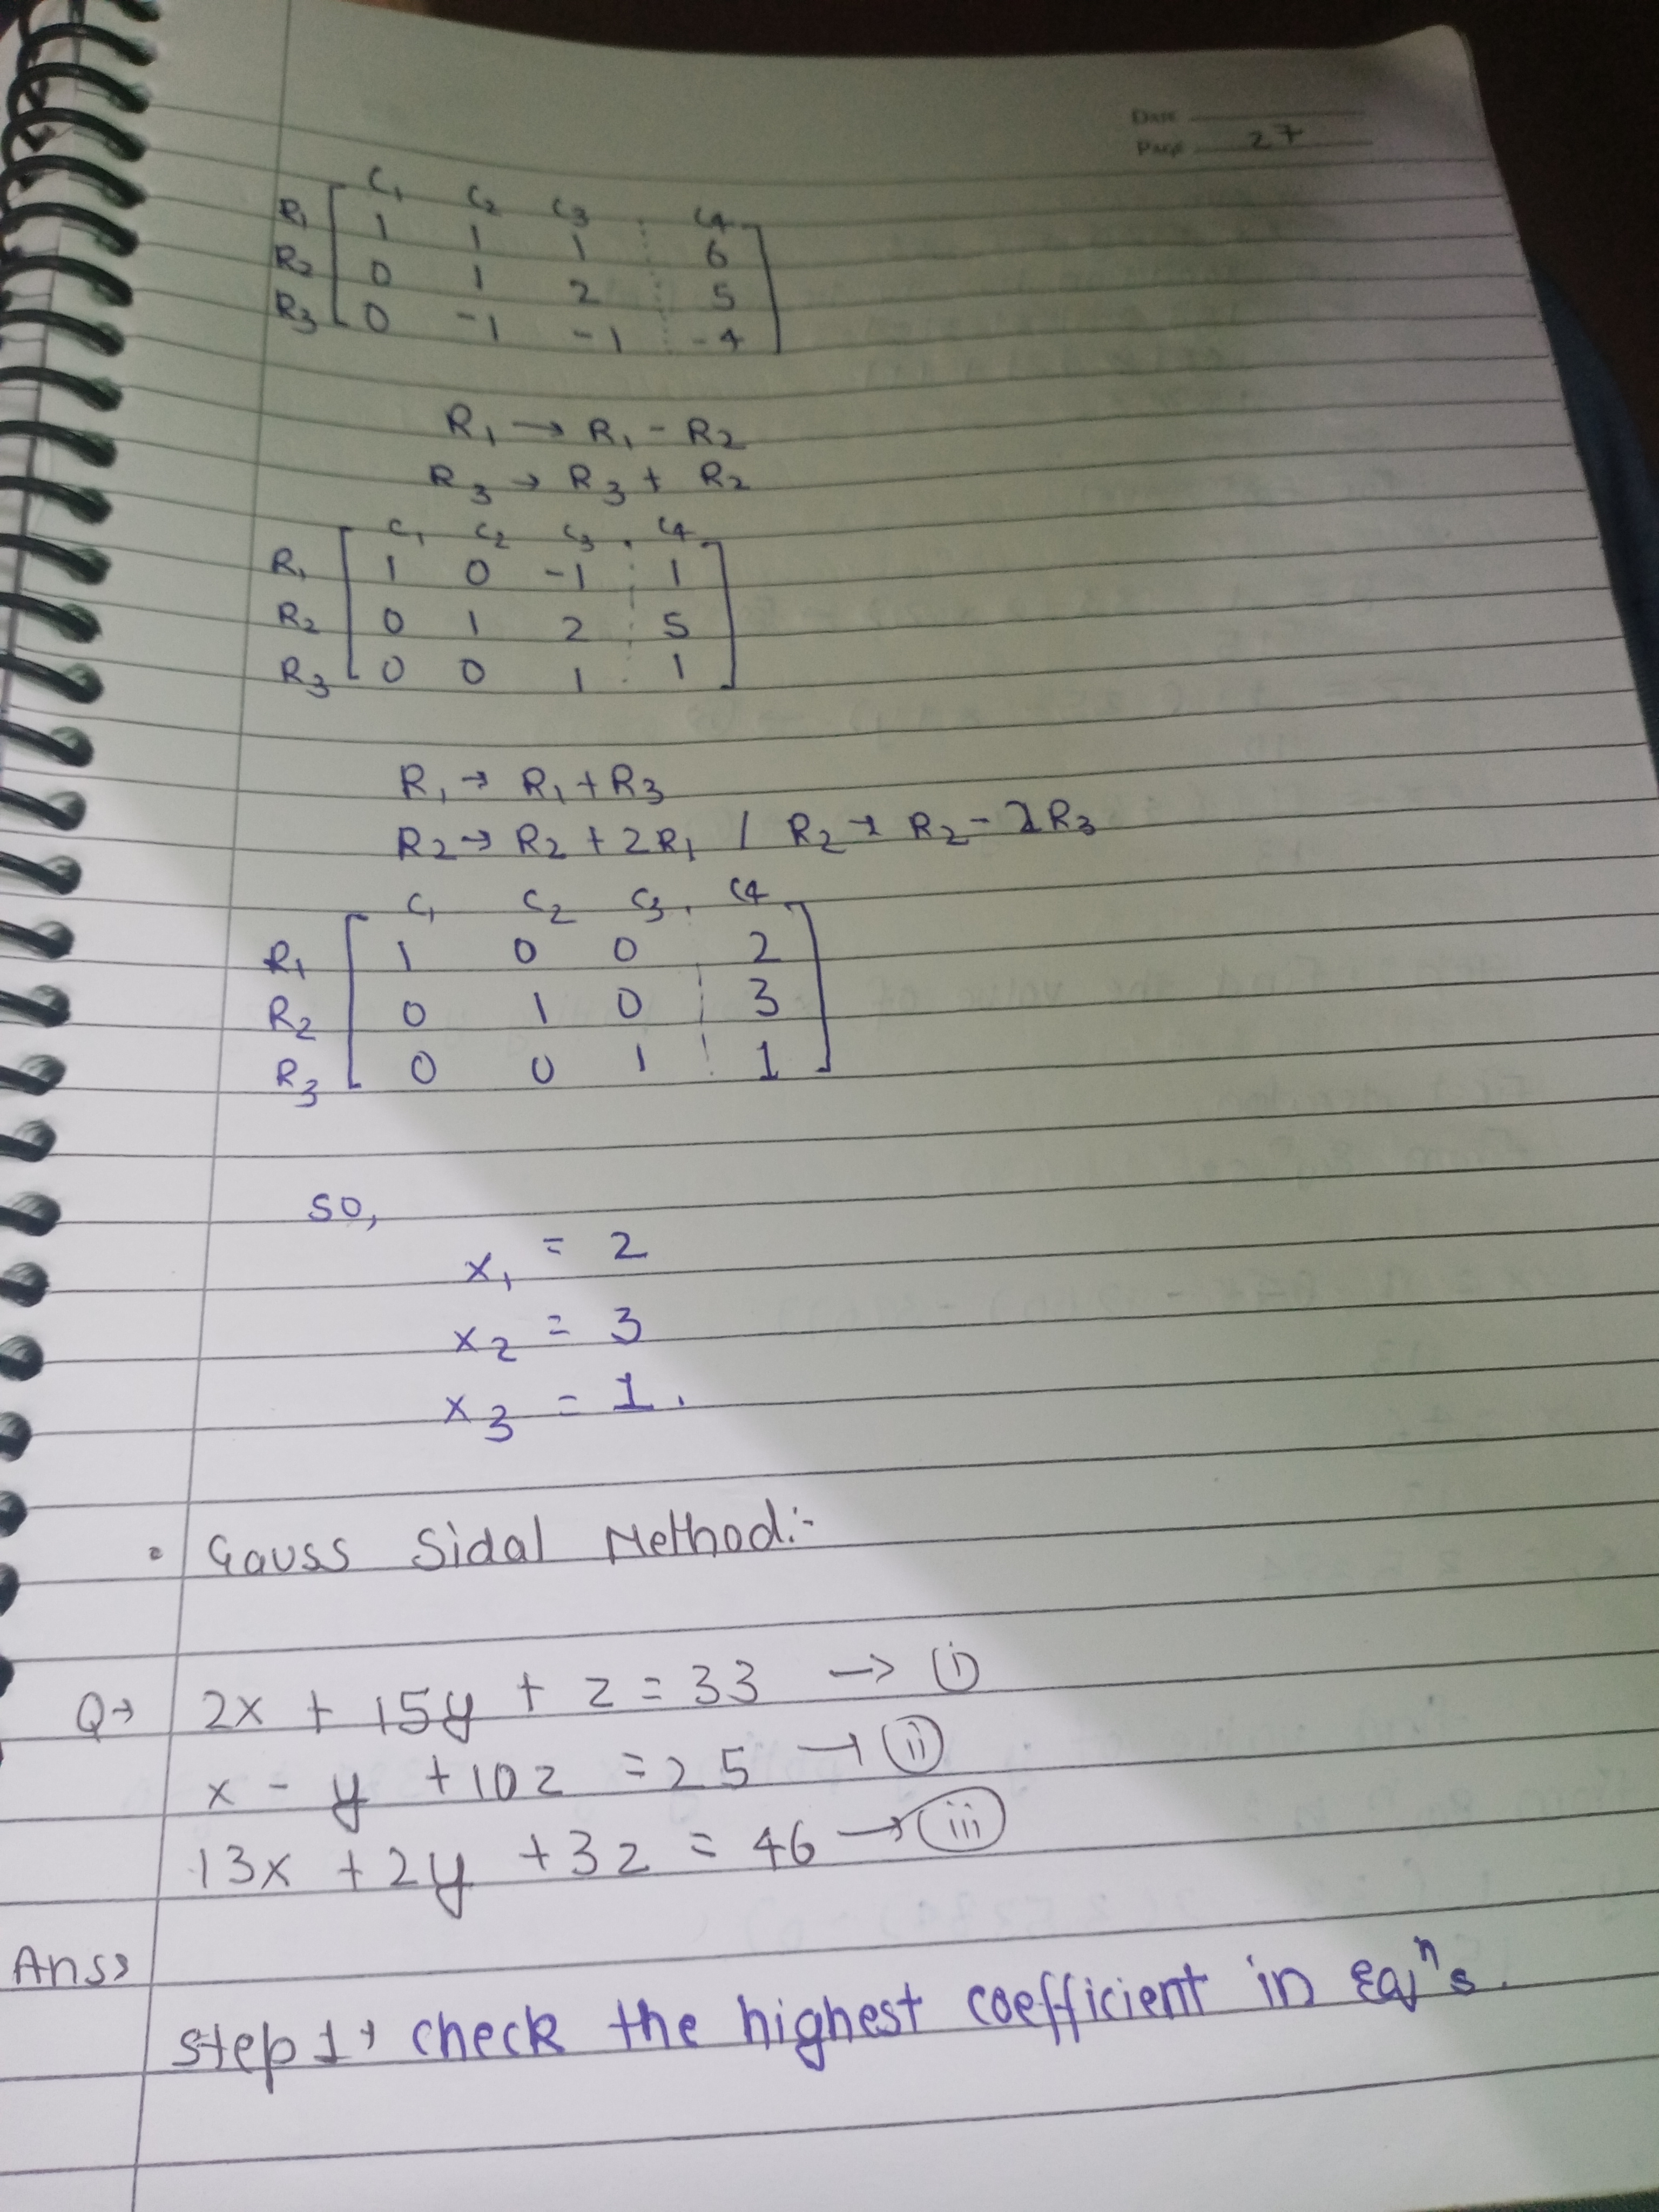 Date
Page 27
C1 C2 C3 C4
R1 1 1 1 6
R2 0 1 2 5
R3 0 -1 -1 -4
R1 → R1 - R2
R3 → R3 + R2
C1 C2 C3 C4
R1 1 0 -1 1
R2 0 1 2 5
R3 0 0 1 1
R1 → R1 + R3
R2 → R2 + 2R1 / R2 → R2 - 2R3
C1 C2 C3 C4
R1 1 0 0 2
R2 0 1 0 3
R3 0 0 1 1
so,
x1 = 2
x2 = 3
x3 = 1.
Gauss Sidal Method:-
Q→ 2x + 15y + z = 33 → (i)
x - y + 10z = 25 → (ii)
13x + 2y + 3z = 46 → (iii)
Ans→
step 1→ check the highest coefficient in Eqⁿs.